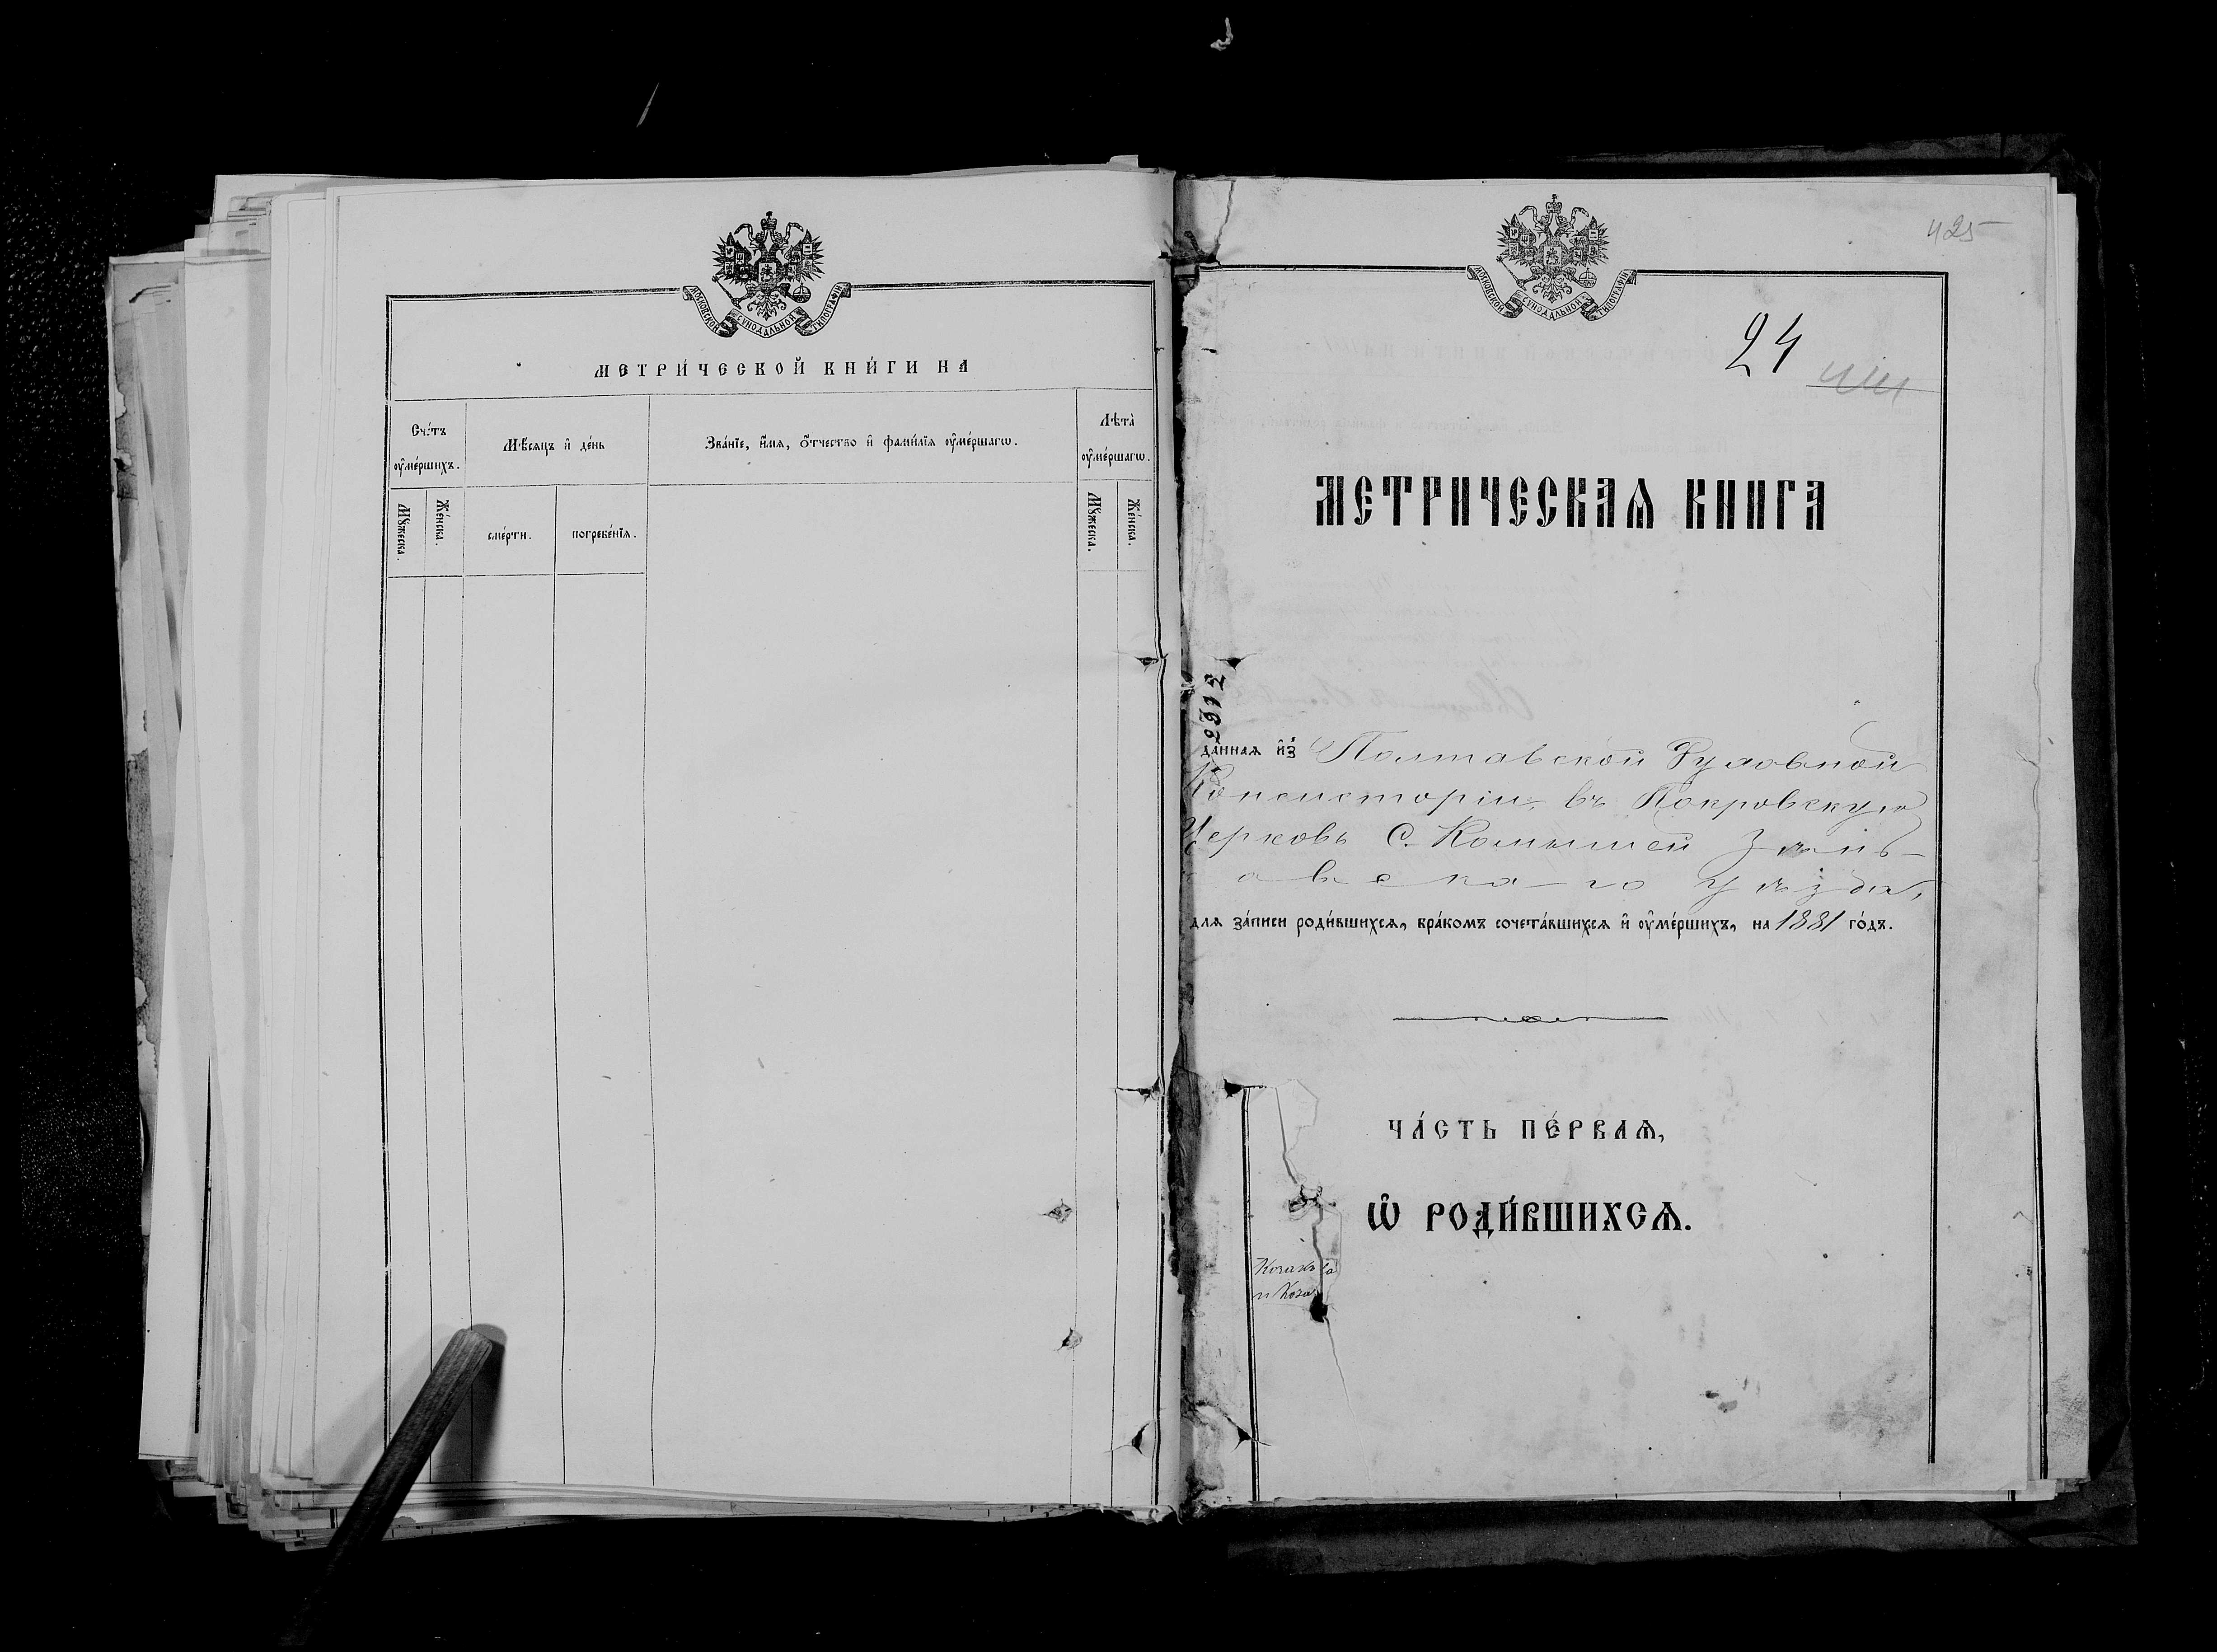 МОСКОВСКОЙ СУНОДАЛЬНОЙ ТИПОГРАФІИ
МЕТРИ́ЧЕСКОЙ КНИ́ГИ НА
Сче́тъ ᲂу҆ме́ршихъ.
Мѣ́сяцъ и҆ де́нь
Зва́нїе, и҆́мя, ѻ҆́тчество и҆ фами́лїя ᲂу҆ме́ршагѡ.
Лѣ́та ᲂу҆ме́ршагѡ.
Мꙋ́жеска.
Же́нска.
сме́рти.
погребе́нїя.
Мꙋ́жеска.
Же́нска.
425
МОСКОВСКОЙ СУНОДАЛЬНОЙ ТИПОГРАФІИ
24
МЕТРИЧЕСКАѦ КНИГА
2312
да́нная и҆з̾ Полтавской Духовной
Консисторіи, въ Покровскую
Церковь С. Комышей Зѣнь-
овска-го уѣзда,
для за́писи роди́вшихся, бра́комъ сочета́вшихся и҆ ᲂу҆ме́ршихъ, на 1881 го́дъ.
ЧА́СТЬ ПЕ́РВАѦ,
Ѽ РОДИ́ВШИХСѦ.